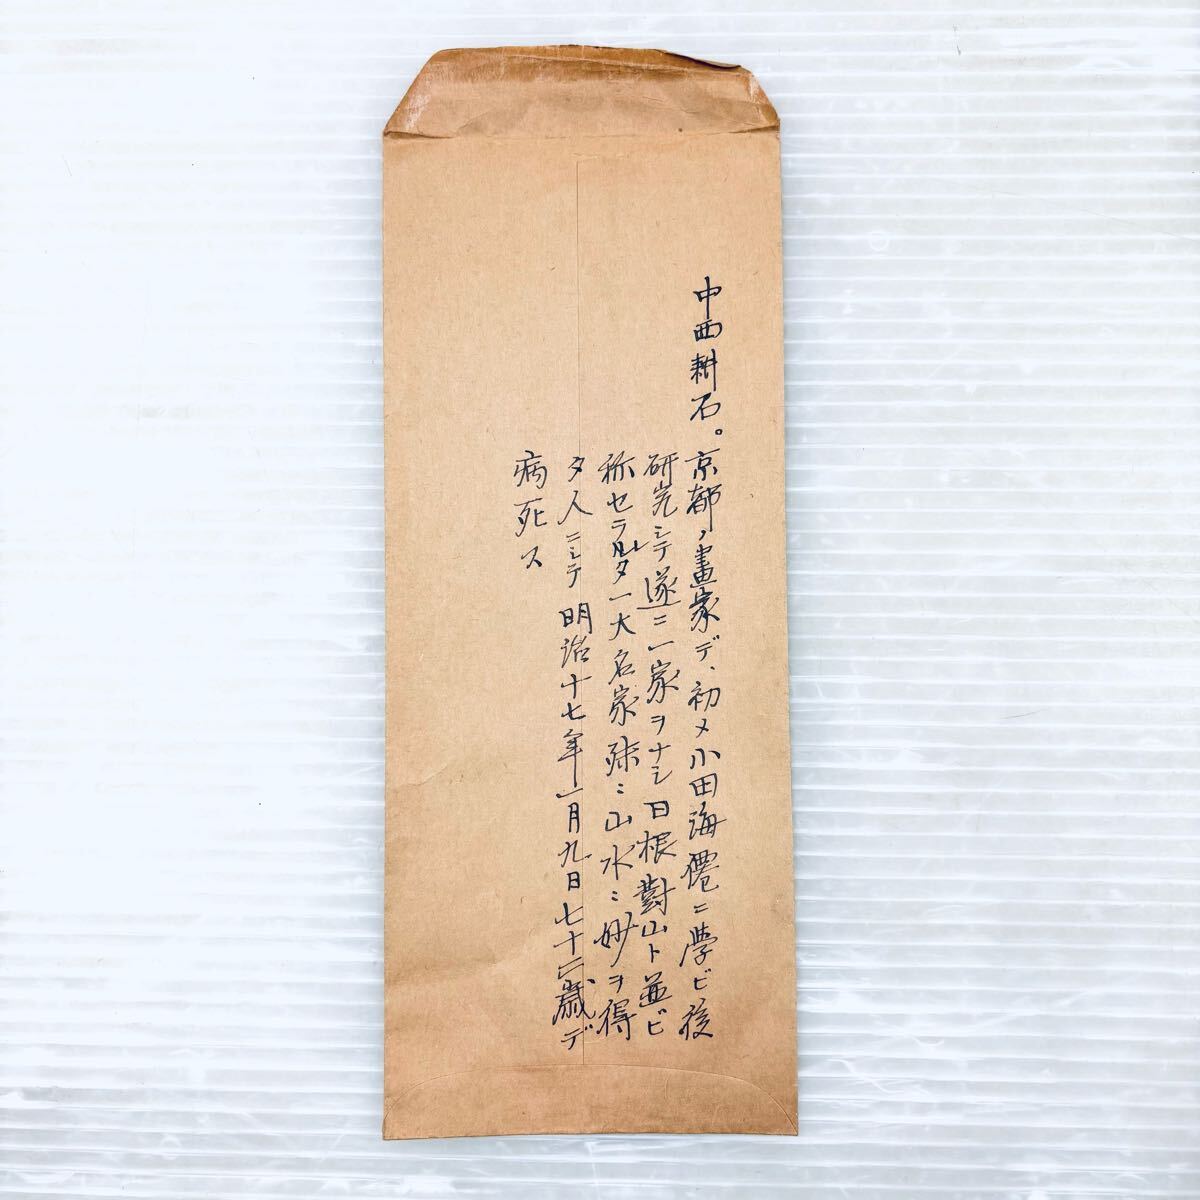 中西耕石。京都ノ畫家デ、初メ小田海僊ニ學ビ後
研究シテ遂ニ一家ヲナシ日根對山ト並ビ
称セラルタ一大名家殊ニ山水ニ妙ヲ得
タ人ニシテ明治十七年一月九日七十二歳デ
病死ス